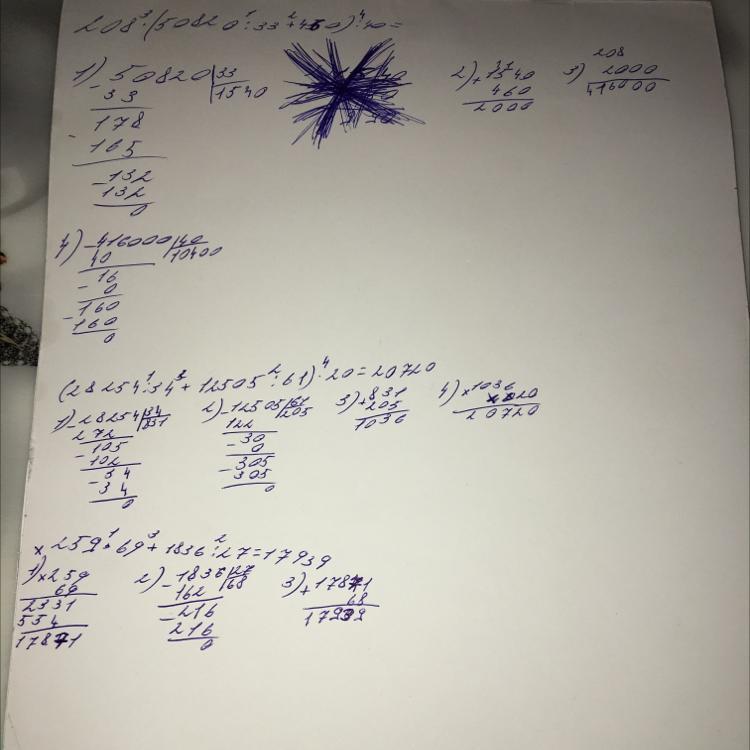 208·(50820:33+460):40=
1) 50820 | 33
33 | 1540
178
165
132
132
0
2) + 1540
460
2000
3) 208
2000
416000
4) 416000 | 40
40 | 10400
16
0
160
160
0
(28254:34+12505:61)·20=20720
1) 28254 | 34
272 | 831
105
102
34
34
0
2) 12505 | 61
122 | 205
30
0
305
305
0
3) + 831
205
1036
4) × 1036
20
20720
× 259·69+1836:27=17939
1) × 259
69
2331
554
17871
2) 1836 | 27
162 | 68
216
216
0
3) + 17871
68
17939